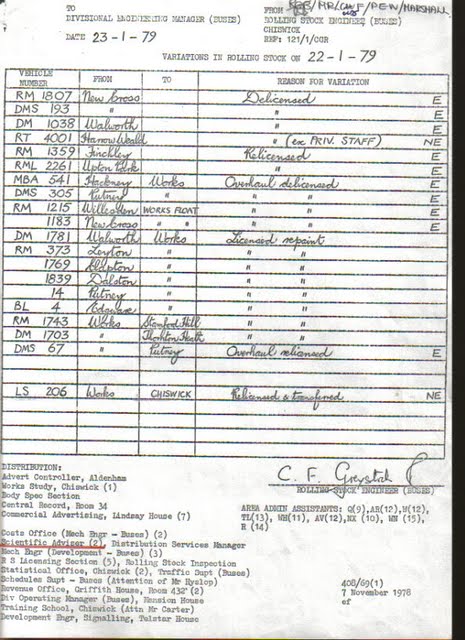 TO
DIVISIONAL ENGINEERING MANAGER (BUSES)
DATE 23-1-79
FROM
ROLLING STOCK ENGINEER (BUSES)
CHISWICK
REF: 121/1/CGR
VARIATIONS IN ROLLING STOCK ON 22-1-79
VEHICLE NUMBER FROM TO REASON FOR VARIATION
RM 1807 New Cross Delicensed E
DMS 193 " " E
DM 1038 Walworth " E
RT 4001 Harrow Weald " (ex PRIV. STAFF) NE
RM 1359 Finchley Relicensed E
RML 2261 Upton Park " E
MBA 541 Hackney Works Overhaul delicensed E
DMS 305 Putney " " " E
RM 1215 Willesden WORKS FLOAT " " E
1183 New Cross " " " " E
DM 1781 Walworth Works Licensed repaint
RM 373 Leyton " " "
1769 Clapton " " "
1839 Dalston " " "
14 Putney " " "
BL 4 Edgware " " "
RM 1743 Works Stamford Hill " "
DM 1703 " Thornton Heath " "
DMS 67 " Putney Overhaul relicensed E
LS 206 Works CHISWICK Relicensed & transferred NE
DISTRIBUTION:
Advert Controller, Aldenham
Works Study, Chiswick (1)
Body Spec Section
Central Record, Room 34
Commercial Advertising, Lindsay House (7)
Costs Office (Mech Engr - Buses) (2)
Scientific Adviser (2), Distribution Services Manager
Mech Engr (Development - Buses) (3)
R S Licensing Section (5), Rolling Stock Inspection
Statistical Office, Chiswick (2), Traffic Supt (Buses)
Schedules Supt - Buses (Attention of Mr Hyslop)
Revenue Office, Griffith House, Room 432 (2)
Div Operating Manager (Buses), Mansion House
Training School, Chiswick (Attn Mr Carter)
Development Engr, Signalling, Telstar House
C. F. Greystock
ROLLING STOCK ENGINEER (BUSES)
AREA ADMIN ASSISTANTS: Q(9),AB(12),H(12),
TL(13), WH(11), AV(12), NX (10), WN (15),
R (14)
408/69(1)
7 November 1978
ef